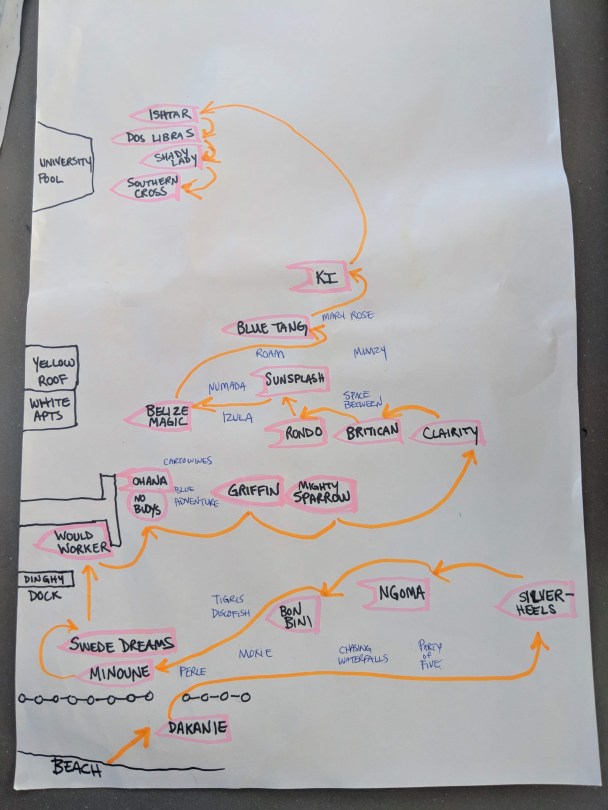 ISHTAR
DOS LIBRAS
SHADY
LADY
SOUTHERN
CROSS
UNIVERSITY
POOL
KI
MARY ROSE
BLUE TANG
ROAM
MIMZY
YELLOW
ROOF
WHITE
APTS
SUNSPLASH
NUMADA
BELIZE
MAGIC
IZULA
SPACE
BETWEEN
RONDO
BRITICAN
CLAIRITY
CARTOWINES
OHANA
NO
BUDYS
BLUE
ADVENTURE
GRIFFIN
MIGHTY
SPARROW
WOULD
WORKER
DINGHY
DOCK
TIGRIS
DISCOFISH
BON
BINI
NGOMA
SILVER-
HEELS
SWEDE DREAMS
MINOUNE
PERLE
MONE
CHASING
WATERFALLS
PARTY
OF
FIVE
DAKANIE
BEACH